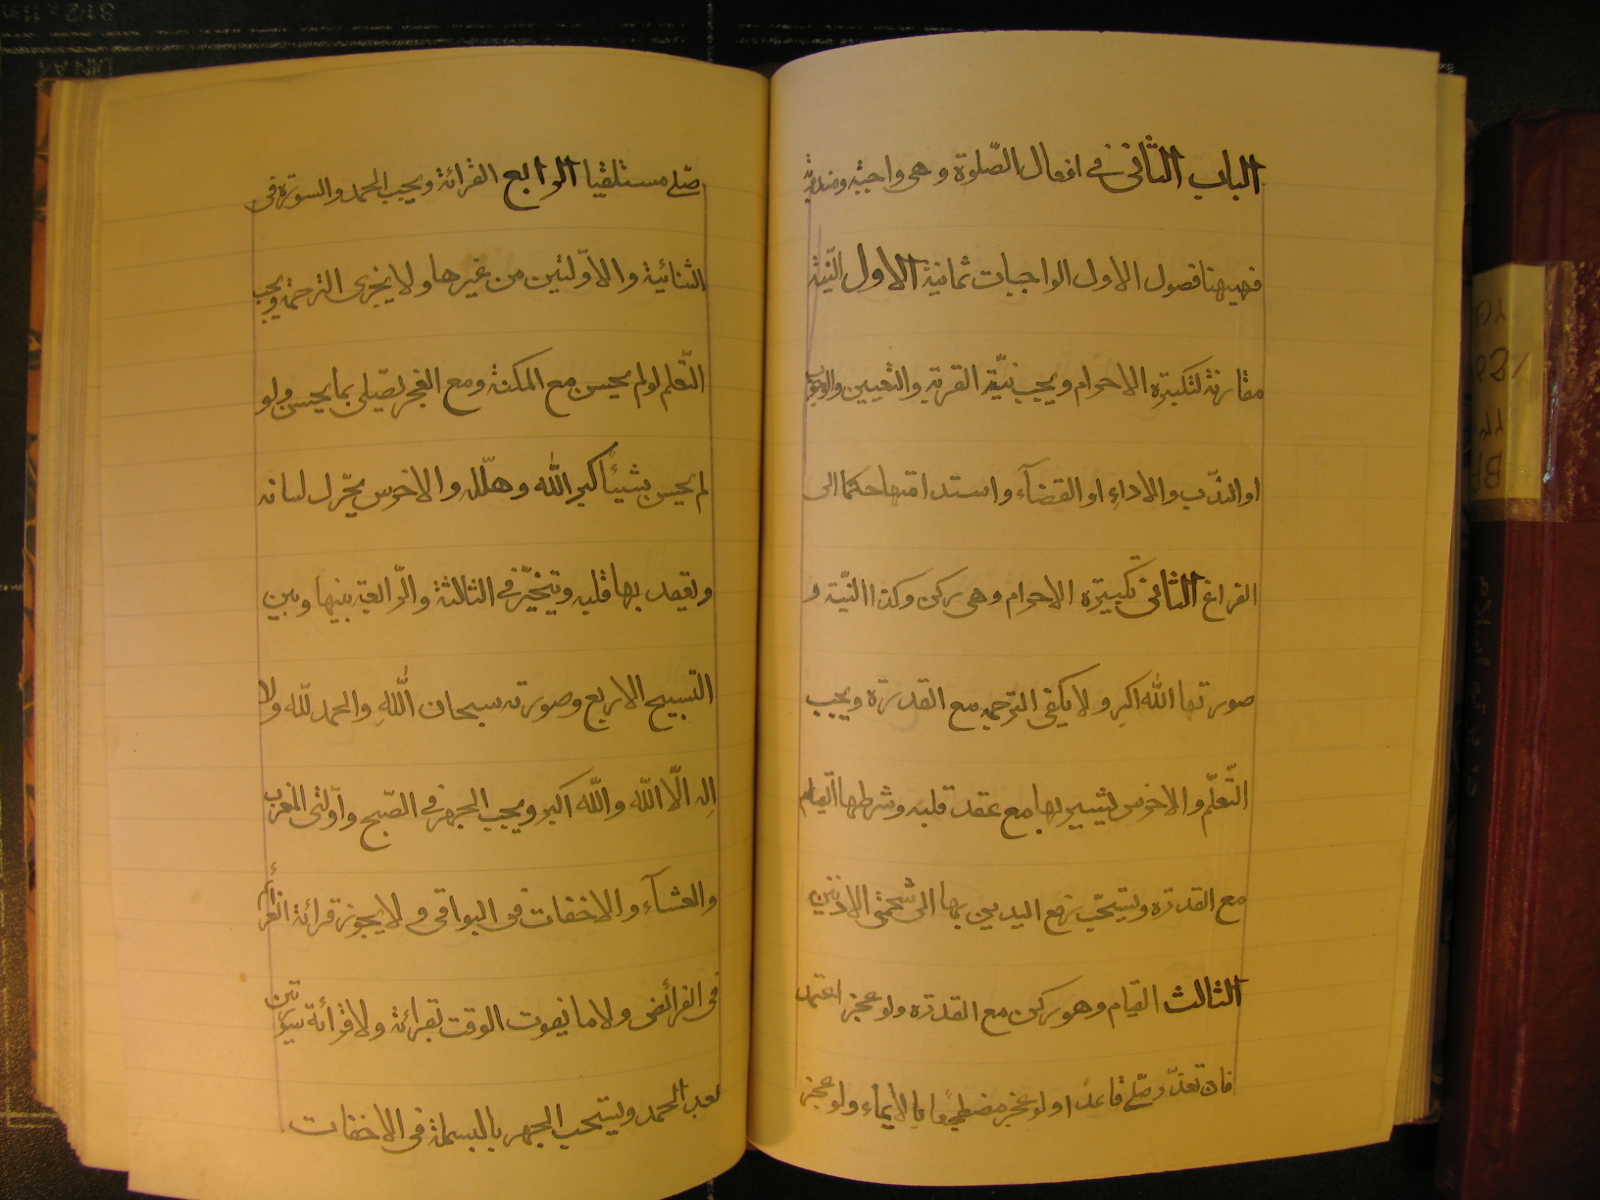 الباب الثانى فى افعال الصّلوة وهى واجبة ومندوبة
فهيهنا فصول الاول الواجبات ثمانية الاول النّية
مقارنة لتكبيرة الاحرام ويجب نيّة القربة والتعيين والوجوب
او النّدب والاداء او القضاء واستدامتها حكما الى
الفراغ الثانى تكبيرة الاحرام وهى ركن وكذا النّية و
صورتها الله اكبر ولا يكفى الترجمه مع القدرة ويجب
التّعلّم والاخرس يشير بها مع عقد قلبه وشرطها القيام
مع القدرة ويستحبّ رفع اليدين بها الى شحمتى الاذنين
الثالث القيام وهو ركن مع القدرة ولو عجز اعتمد
فان تعذّر صلّى قاعدا ولو عجز مضطجعا بالايماء ولو عجز
صلّى مستلقيا الرابع القرائة ويجب الحمد والسورة فى
الثنائية والاوّلتين من غيرها ولا يجزى الترجمة ويجب
التّعلم لو لم يحسن مع المكنة ومع العجز يصلى بما يحسن ولو
لم يحسن شيئا كبر الله وهلّله والاخرس يحرّك لسانه
ويعقد بها قلبه ويتخيّر فى الثالثة والرّابعة بينها وبين
التسبيح الاربع وصورته سبحان اللّٰه والحمد للّه ولا
اله الّا اللّه واللّه اكبر ويجب الجهر فى الصّبح واوّلتى المغرب
والعشاء والاخفات فى البواقى ولا يجوز قرائة العزائم
فى الفرائض ولا ما يفوت الوقت بقرائة ولا قرائة سورتين
بعد الحمد ويستحب الجهر بالبسملة فى الاخفات